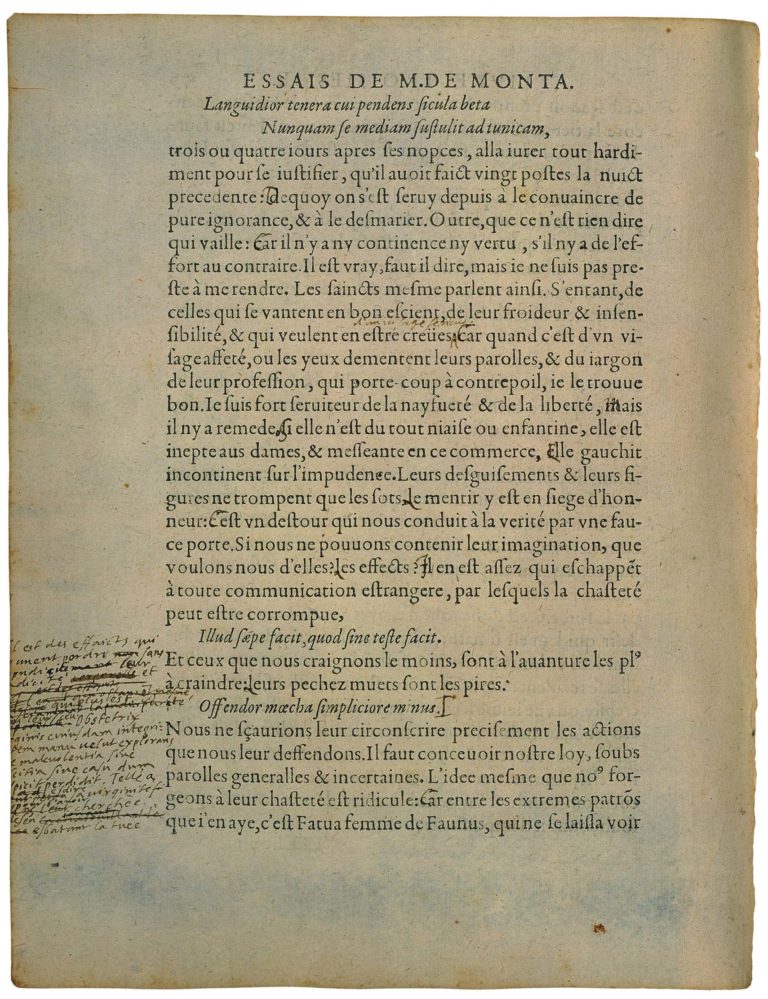 ESSAIS DE M. DE MONTA.
Languidior tenera cui pendens ſicula beta
Nunquam ſe mediam ſuſtulit ad tunicam,
trois ou quatre iours apres ſes nopces, alla iurer tout hardi-
ment pour ſe iuſtifier, qu'il auoit faict vingt poſtes la nuict
precedente: Dequoy on s'eſt ſeruy depuis à le conuaincre de
pure ignorance, & à le deſmarier. Outre, que ce n'eſt rien dire
qui vaille: Car il n'y a ny continence ny vertu, s'il ny a de l'ef-
fort au contraire. Il eſt vray, faut il dire, mais ie ne ſuis pas pre-
ſte à me rendre. Les ſaincts meſme parlent ainſi. S'entant, de
celles qui ſe vantent en bon eſcient, de leur froideur & inſen-
ſibilité, & qui veulent en eſtre creües, Car quand c'eſt d'vn vi-
ſage affeté, ou les yeux dementent leurs parolles, & du iargon
de leur profeſſion, qui porte-coup à contrepoil, ie le trouue
bon. Ie ſuis fort ſeruiteur de la nayfueté & de la liberté, Mais
il ny a remede, ſi elle n'eſt du tout niaiſe ou enfantine, elle eſt
inepte aus dames, & meſſeante en ce commerce, Elle gauchit
incontinent ſur l'impudence. Leurs deſguiſements & leurs fi-
gures ne trompent que les ſots, Le mentir y eſt en ſiege d'hon-
neur: C'eſt vn deſtour qui nous conduit à la verité par vne fau-
ce porte. Si nous ne pouuons contenir leur imagination, que
voulons nous d'elles? les effects? Il en eſt aſſez qui eſchappẽt
à toute communication eſtrangere, par leſquels la chaſteté
peut eſtre corrompue,
Illud ſæpe facit, quod ſine teſte facit.
Et ceux que nous craignons le moins, ſont à l'auanture les plꝰ
à craindre: Leurs pechez muets ſont les pires.
Offendor mœcha ſimpliciore minus.
Nous ne ſçaurions leur circonſcrire preciſement les actions
que nous leur deffendons. Il faut conceuoir noſtre loy, ſoubs
parolles generalles & incertaines. L'idee meſme que noꝰ for-
geons à leur chaſteté eſt ridicule: Car entre les extremes patrõs
que i'en aye, c'eſt Fatua femme de Faunus, qui ne ſe laiſſa voir
il est des effaicts qui
perdre sans
Obstetrix
virginis cuiusdam integrita
tem manu velut explorans
malevolentia sine
inscitia sine casu dum
inspicit perdidit. Telle a
virginite
cherchee
esbatant la tuee